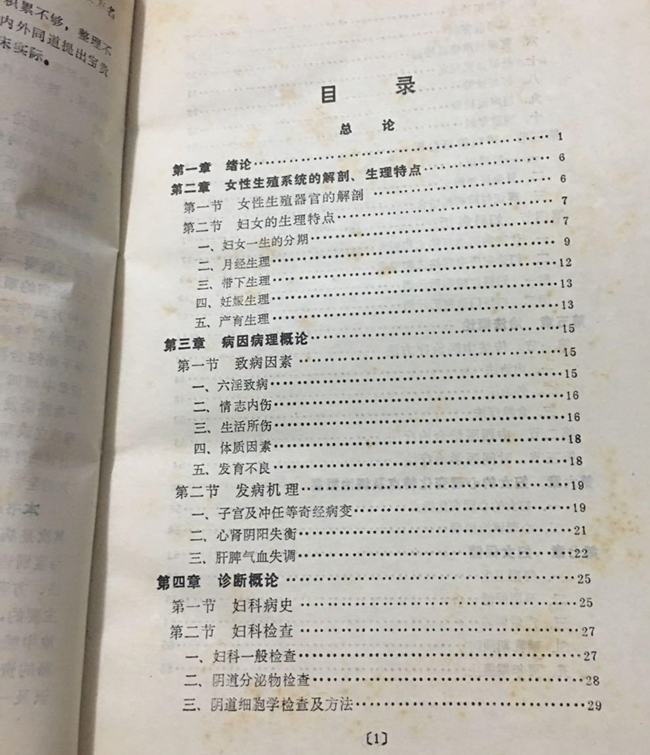 积累不够，整理不
内外同道提出宝贵
末实际。
目 录
总 论
第一章 绪论…………1
第二章 女性生殖系统的解剖、生理特点…………6
第一节 女性生殖器官的解剖…………6
第二节 妇女的生理特点…………7
一、妇女一生的分期…………7
二、月经生理…………9
三、带下生理…………12
四、妊娠生理…………13
五、产育生理…………13
第三章 病因病理概论…………15
第一节 致病因素…………15
一、六淫致病…………15
二、情志内伤…………16
三、生活所伤…………16
四、体质因素…………18
五、发育不良…………18
第二节 发病机理…………19
一、子宫及冲任等奇经病变…………19
二、心肾阴阳失衡…………21
三、肝脾气血失调…………22
第四章 诊断概论…………25
第一节 妇科病史…………25
第二节 妇科检查…………27
一、妇科一般检查…………27
二、阴道分泌物检查…………28
三、阴道细胞学检查及方法…………29
〔1〕